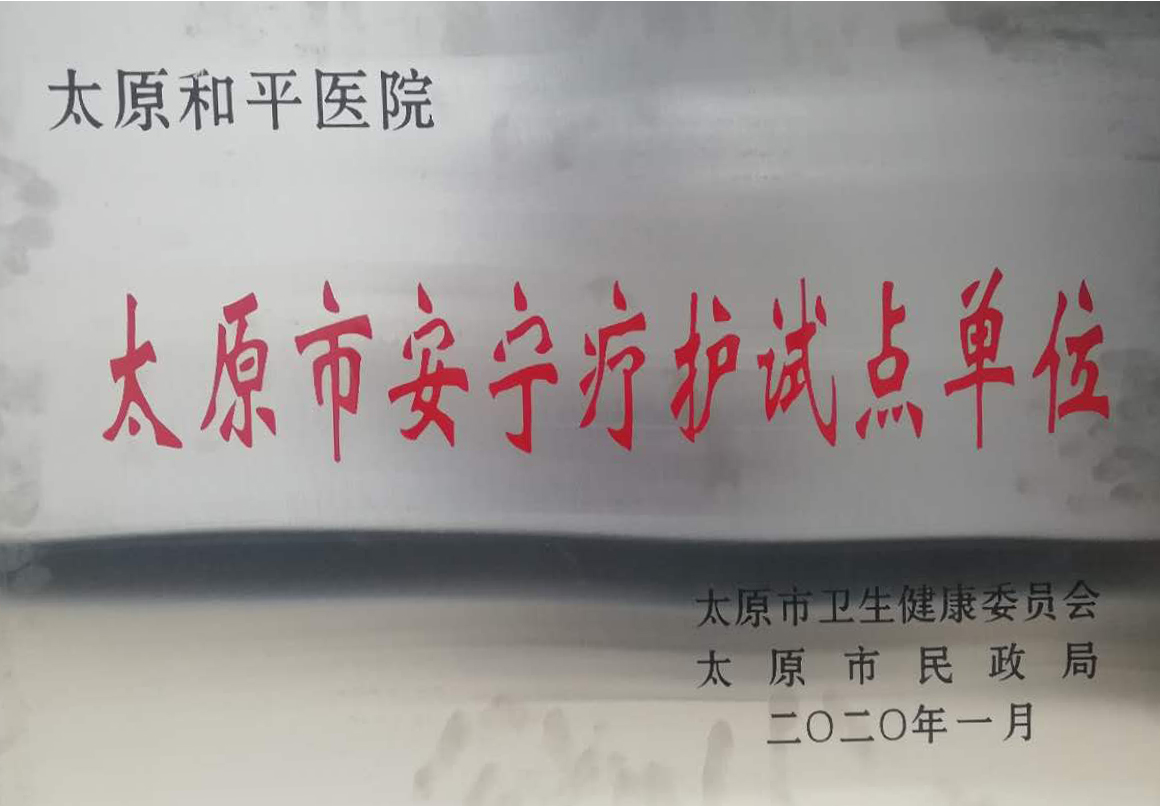 太原和平医院
太原市安宁疗护试点单位
太原市卫生健康委员会
太原市民政局
二〇二〇年一月